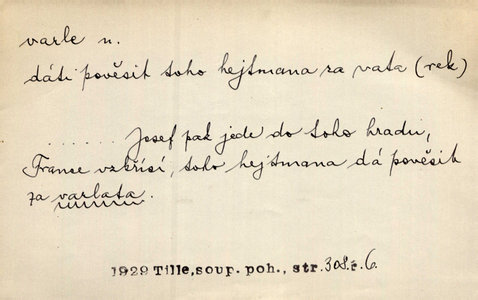 varle n.
dáti pověsit toho hejtmana za vata (rek)
....... Josef pak jede do toho hradu,
France vzkřísí, toho hejtmana dá pověsit
za varlata.
1929 Tille, soup. poh., str. 308. ř. 6.